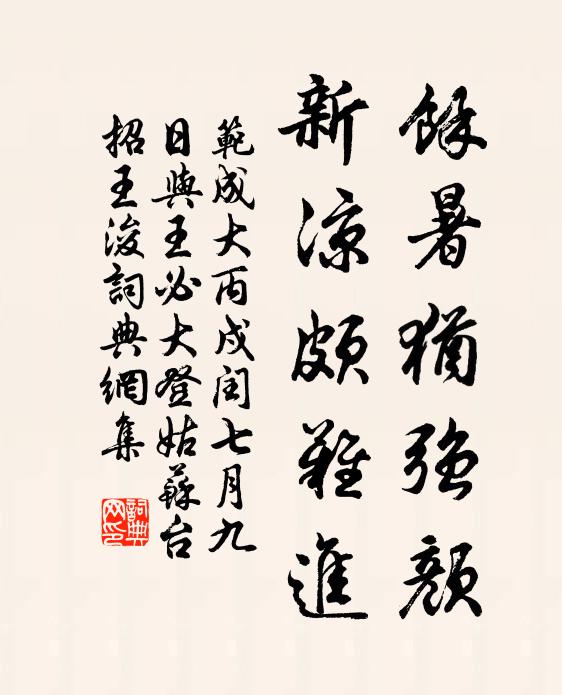 餘暑猶強顏
新涼頗難進
範成大丙戌閏七月九
日與王必大登姑蘇台
招王浚詞典網集
詞典网印